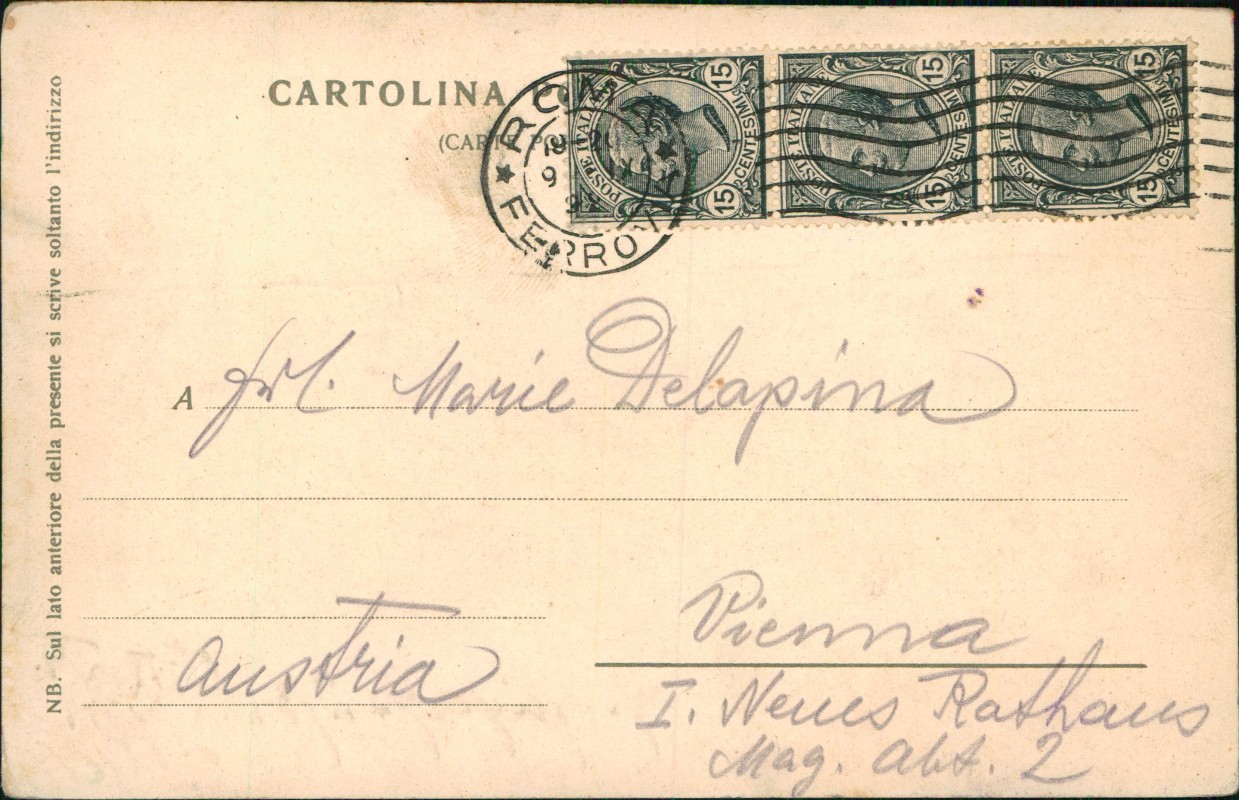 CARTOLINA
NB. Sul lato anteriore della presente si scrive soltanto l'indirizzo
ROMA
FERROVIA
POSTE ITALIANE
15 CENTESIMI 15
POSTE ITALIANE
15 CENTESIMI 15
POSTE ITALIANE
15 CENTESIMI 15
A Frl. Marie Delapina
Vienna
Austria
I. Neues Rathaus
Mag. Abt. 2